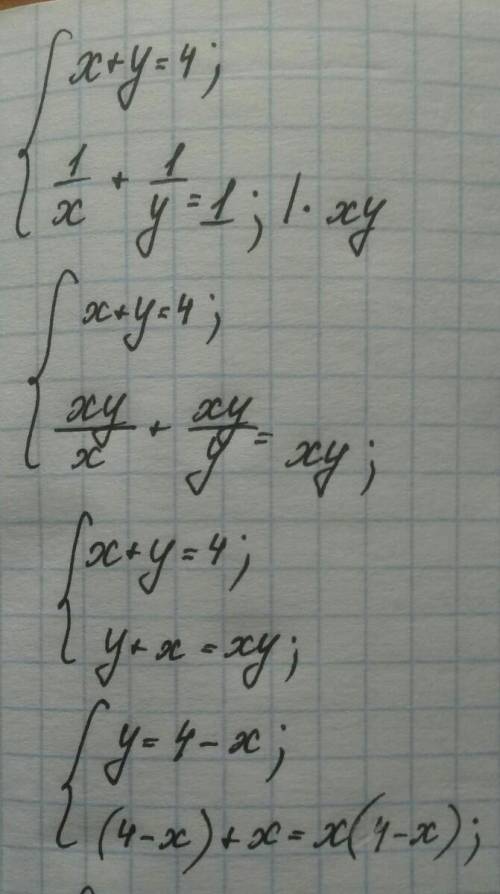 x+y=4;
1/x + 1/y = 1; | · xy
x+y=4;
xy/x + xy/y = xy;
x+y=4;
y+x=xy;
y=4-x;
(4-x)+x=x(4-x);